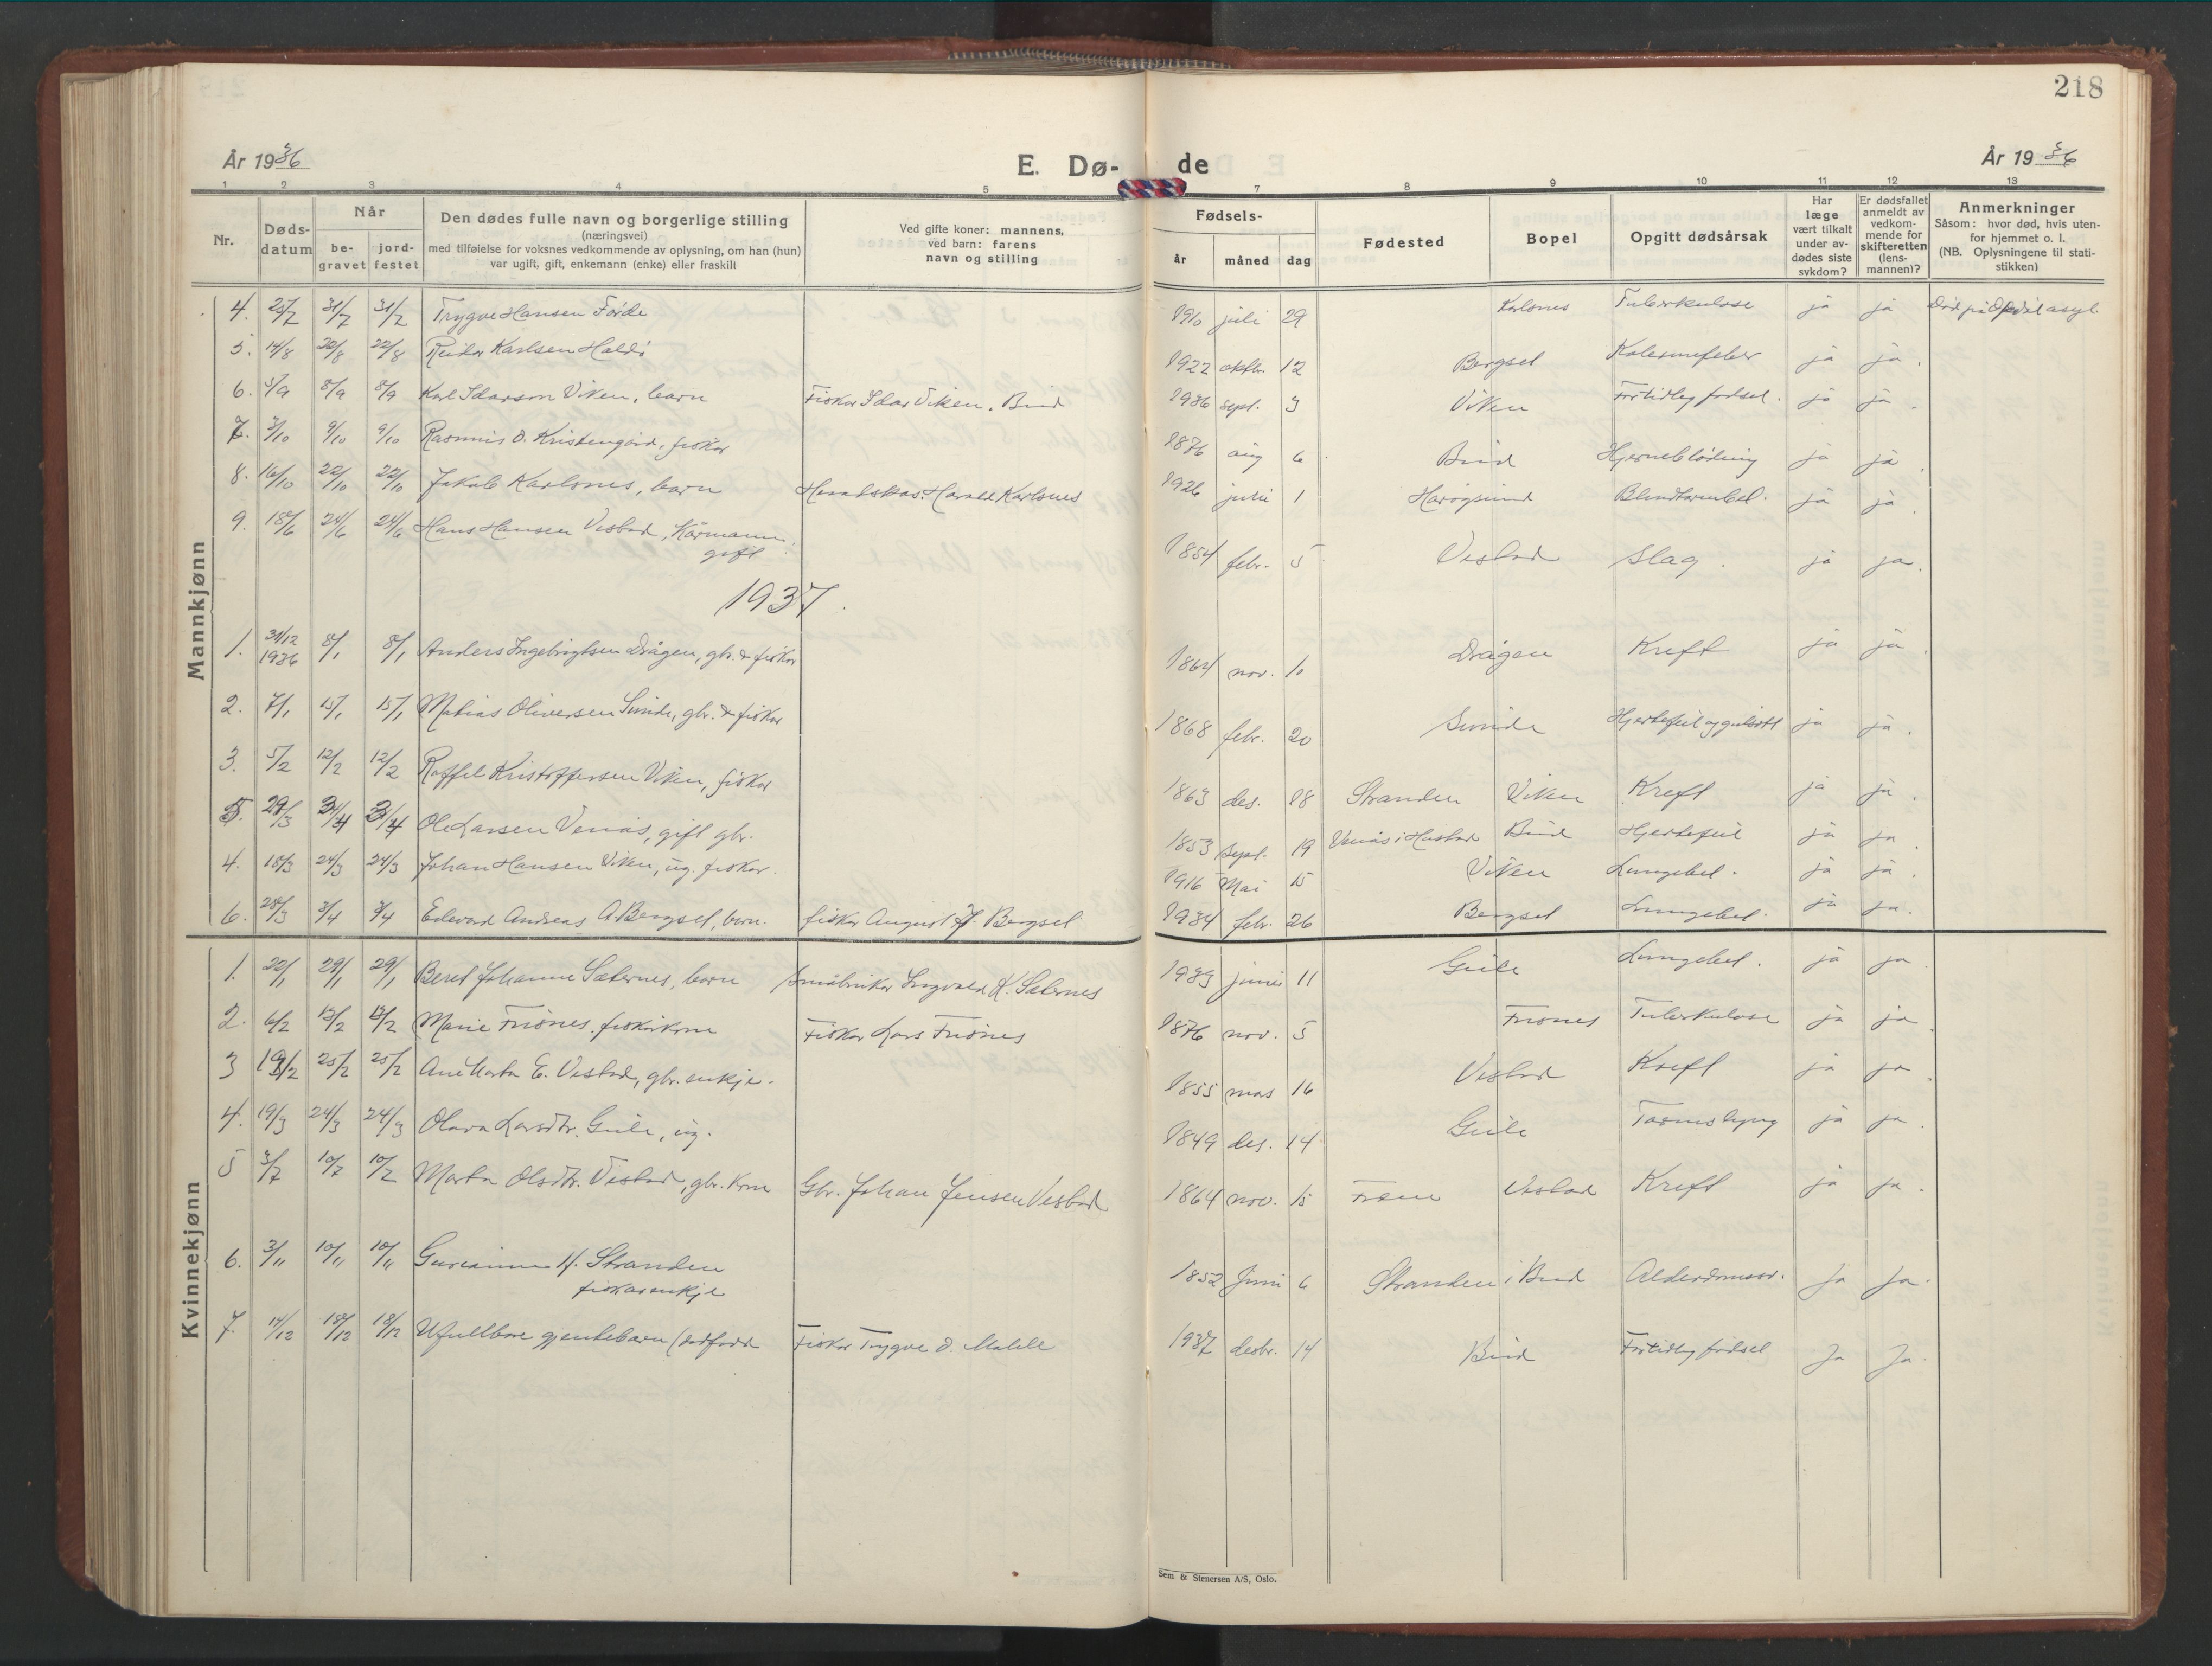 218
År 1936
E. Dø- de
År 1936
1 2 3 4 5 7 8 9 10 11 12 13
Nr.
Døds-
datum
Når
be-
gravet
jord-
festet
Den dødes fulle navn og borgerlige stilling
(næringsvei)
med tilføielse for voksnes vedkommende av oplysning, om han (hun)
var ugift, gift, enkemann (enke) eller fraskilt
Ved gifte koner: mannens,
ved barn: farens
navn og stilling
Fødsels-
år måned dag
Fødested
Bopel
Opgitt dødsårsak
Har
læge
vært tilkalt
under av-
dødes siste
sykdom?
Er dødsfallet
anmeldt av
vedkom-
mende for
skifteretten
(lens-
mannen)?
Anmerkninger
Såsom: hvor død, hvis uten-
for hjemmet o. l.
(NB. Oplysningene til stati-
stikken)
Mannkjønn
4. 31/7 Trygve Hansen Førde 1910 juli 29 Karlsnes Tuberkulose ja ja
5. 14/8 22/8 22/8 Reidar Karlsen Haldø 1922 oktbr. 12 Bergset ja ja.
6. 3/9 8/9 8/9 Karl Idarson Viken, barn Fiskar Idar Viken, Bud 1936 sept. 3 Viken For tidleg fødsel. ja ja.
7. 3/10 9/10 9/10 Rasmus O. Kristengård, fiskar 1876 aug 6 Bud Hjerneblødning ja ja.
8. 16/10 22/10 22/10 Jakob Karlsnes, barn Harald Karlsnes 1926 juni 1 Harøysund Blindtarmbet. ja ja.
9. 18/6 24/6 24/6 Hans Hansen Vestad, Kårmann, gift 1854 febr. 5 Vestad Slag. ja ja.
1937.
1. 31/12 1936 8/1 8/1 Anders Ingebrigtsen Drågen, gbr. & fiskar 1864 nov. 10 Drågen Kreft ja ja
2. 7/1 15/1 15/1 Matias Oliversen Sunde, gbr. & fiskar 1868 febr. 20 Sunde Hjertefeil og gulsott ja ja.
3. 5/2 12/2 12/2 Raffel Kristoffersen Viken, fiskar 1863 des. 18 Stranden Viken Kreft ja ja.
5. 29/3 3/4 3/4 Ole Larsen Venås, gift gbr. 1853 sept. 19 Venås i Hustad Bud Hjertefeil ja ja.
4. 18/3 24/3 24/3 Johan Hansen Viken, ug. fiskar. 1916 Mai 15 Viken Lungebet. ja ja.
6. 28/3 3/4 3/4 Edvard Andreas A. Bergset, barn. fiskar August H. Bergset 1934 febr. 26 Bergset Lungebet. ja ja.
Kvinnekjønn
1. 22/1 29/1 29/1 Beret Johanne Sæternes, barn Småbruker Ingvald K. Sæternes 1933 juni 11 Gule Lungebet. ja ja.
2. 6/2 13/2 13/2 Marie Frisnes, fiskarkone Fiskar Lars Frisnes 1876 nov. 5 Frisnes Tuberkulose ja ja.
3 19/2 25/2 25/2 Ane Marta E. Vestad, gbr. enkje. 1855 mars 16 Vestad Kreft ja ja.
4. 19/3 24/3 24/3 Olava Larsdtr. Gule, ug. 1849 des. 14 Gule ja ja.
5 3/7 10/7 10/7 Marta Olsdtr. Vestad, gbr. kone Gbr. Johan Jensen Vestad 1864 nov. 15 Vestad Kreft ja ja.
6. 3/11 10/11 10/11 H. Stranden
fiskarenkje 1852 Juni 6 Stranden i Bud ja ja.
7. 14/12 18/12 18/12 Ufullbore gjentebarn (dødfødd Fiskar Trygve O. Male 1937 desbr. 14 Bud For tidleg fødsel Ja Ja.
Sem & Stenersen A/S, Oslo.